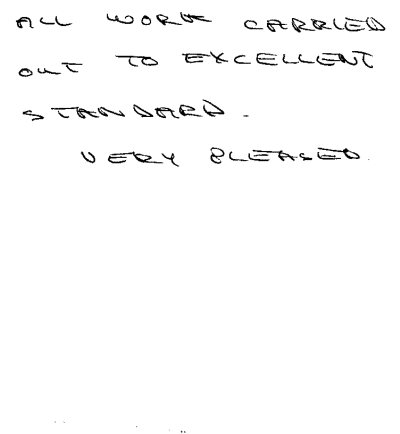 ALL WORK CARRIED
OUT TO EXCELLENT
STANDARD.
VERY PLEASED.